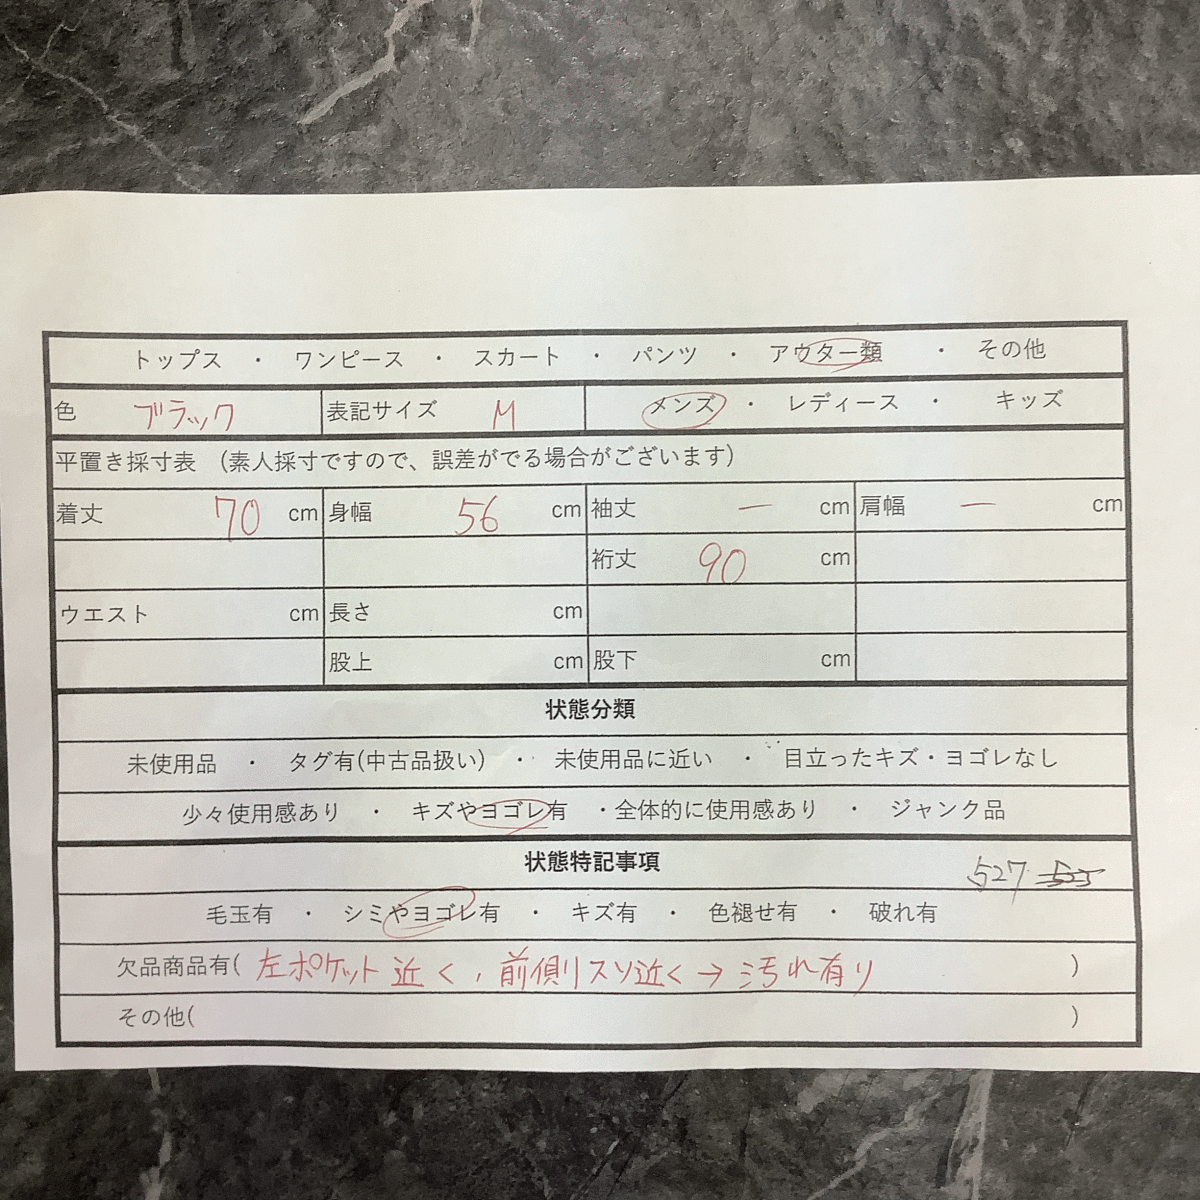 トップス ・ ワンピース ・ スカート ・ パンツ ・ アウター類 ・ その他
色 ブラック 表記サイズ M メンズ ・ レディース ・ キッズ
平置き採寸表 (素人採寸ですので、誤差がでる場合がございます)
着丈 70 cm 身幅 56 cm 袖丈 ー cm 肩幅 ー cm
裄丈 90 cm
ウエスト cm 長さ cm
股上 cm 股下 cm
状態分類
未使用品 ・ タグ有(中古品扱い) ・ 未使用品に近い ・ 目立ったキズ・ヨゴレなし
少々使用感あり ・ キズやヨゴレ有 ・全体的に使用感あり ・ ジャンク品
状態特記事項 527 525
毛玉有 ・ シミやヨゴレ有 ・ キズ有 ・ 色褪せ有 ・ 破れ有
欠品商品有( 左ポケット近く, 前側リスソ近く→汚れ有り )
その他( )